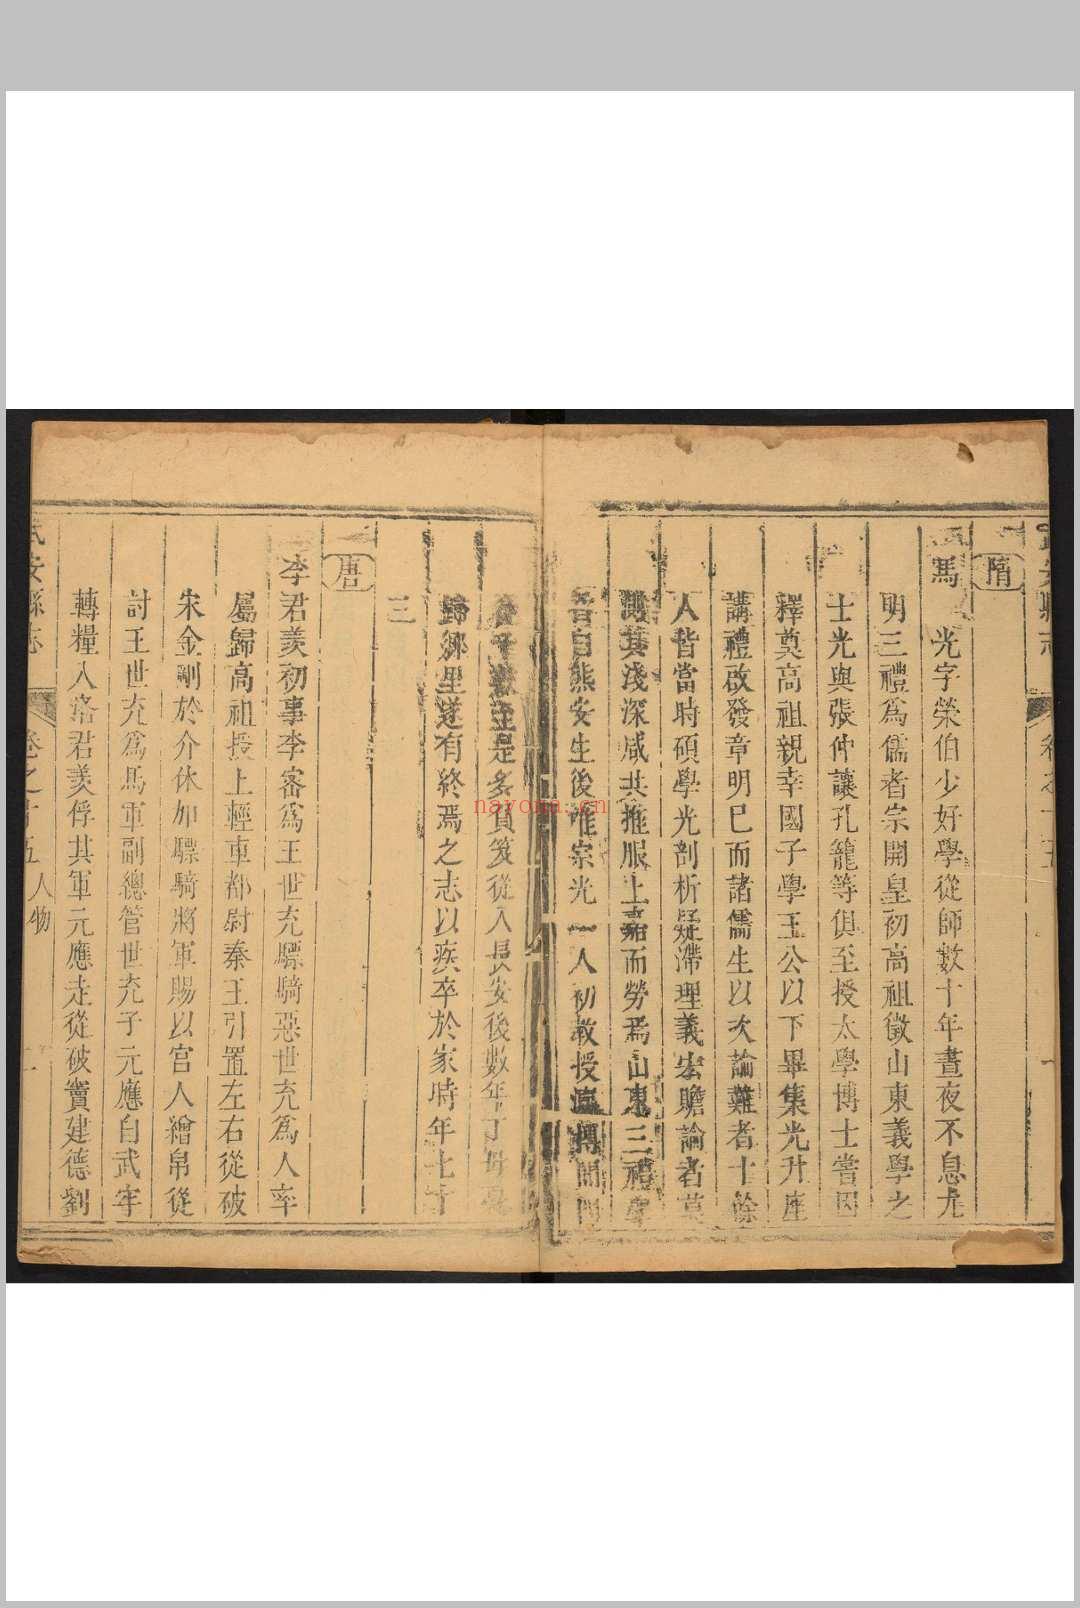 隋
馬　光字榮伯少好學從師數十年晝夜不息尤
明三禮爲儒者宗開皇初高祖徵山東義學之
士光與張仲讓孔籠等俱至授太學博士嘗因
釋奠高祖親幸國子學王公以下畢集光升座
講禮啟發章明已而諸儒生以次論難者十餘
人皆當時碩學光剖析疑滯理義宏贍論者莫
測其淺深咸共推服上嘉而勞焉山東三禮學
者自熊安生後唯宗光一人初教授瀛博間門
徒千數至是多負笈從入長安後數年丁母憂
歸鄉里遂有終焉之志以疾卒於家時年七十
三
唐
李君羨初事李密爲王世充驃騎惡世充爲人率
屬歸高祖授上輕車都尉秦王引置左右從破
宋金剛於介休加驃騎將軍賜以宫人繒帛從
討王世充爲馬軍副總管世充子元應自武牢
轉糧入洛君羨俘其軍元應走從破竇建德劉
武安縣志　卷之十五　人物
nayona.cn